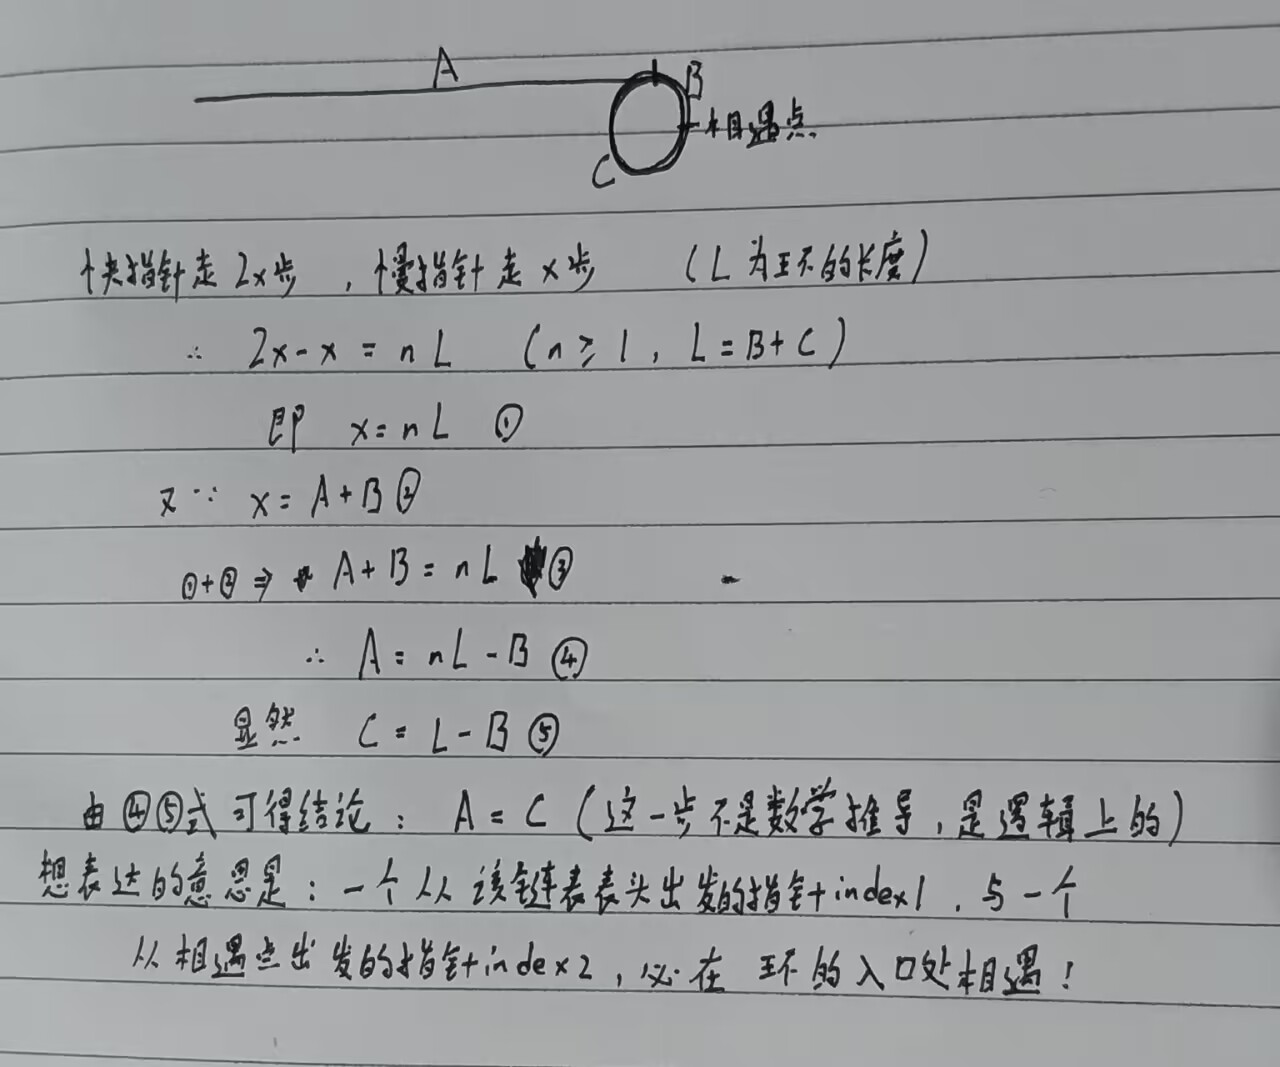 A
B
相遇点
C
快指针走 2x步 , 慢指针走 x步 (L 为环的长度)
∴ 2x-x = nL (n≥1, L=B+C)
即 x=nL ①
又∵ x=A+B ②
①+② ⇒ A+B=nL ③
∴ A=nL-B ④
显然 C=L-B ⑤
由④⑤式可得结论: A=C (这一步不是数学推导, 是逻辑上的)
想表达的意思是: 一个从该链表表头出发的指针index1, 与一个
从相遇点出发的指针index2, 必在环的入口处相遇!